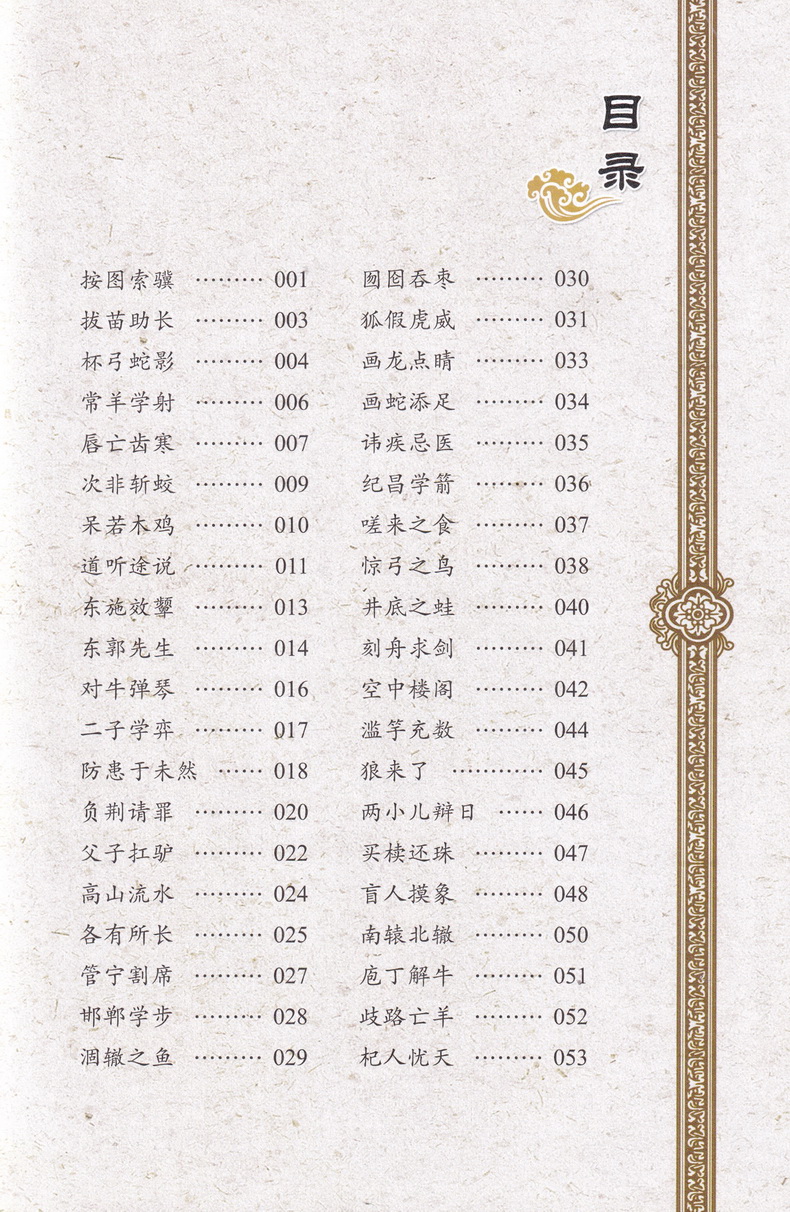 目录
按图索骥 ⋯⋯⋯ 001
拔苗助长 ⋯⋯⋯ 003
杯弓蛇影 ⋯⋯⋯ 004
常羊学射 ⋯⋯⋯ 006
唇亡齿寒 ⋯⋯⋯ 007
次非斩蛟 ⋯⋯⋯ 009
呆若木鸡 ⋯⋯⋯ 010
道听途说 ⋯⋯⋯ 011
东施效颦 ⋯⋯⋯ 013
东郭先生 ⋯⋯⋯ 014
对牛弹琴 ⋯⋯⋯ 016
二子学弈 ⋯⋯⋯ 017
防患于未然 ⋯⋯ 018
负荆请罪 ⋯⋯⋯ 020
父子扛驴 ⋯⋯⋯ 022
高山流水 ⋯⋯⋯ 024
各有所长 ⋯⋯⋯ 025
管宁割席 ⋯⋯⋯ 027
邯郸学步 ⋯⋯⋯ 028
涸辙之鱼 ⋯⋯⋯ 029
囫囵吞枣 ⋯⋯⋯ 030
狐假虎威 ⋯⋯⋯ 031
画龙点睛 ⋯⋯⋯ 033
画蛇添足 ⋯⋯⋯ 034
讳疾忌医 ⋯⋯⋯ 035
纪昌学箭 ⋯⋯⋯ 036
嗟来之食 ⋯⋯⋯ 037
惊弓之鸟 ⋯⋯⋯ 038
井底之蛙 ⋯⋯⋯ 040
刻舟求剑 ⋯⋯⋯ 041
空中楼阁 ⋯⋯⋯ 042
滥竽充数 ⋯⋯⋯ 044
狼来了 ⋯⋯⋯⋯ 045
两小儿辩日 ⋯⋯ 046
买椟还珠 ⋯⋯⋯ 047
盲人摸象 ⋯⋯⋯ 048
南辕北辙 ⋯⋯⋯ 050
庖丁解牛 ⋯⋯⋯ 051
歧路亡羊 ⋯⋯⋯ 052
杞人忧天 ⋯⋯⋯ 053